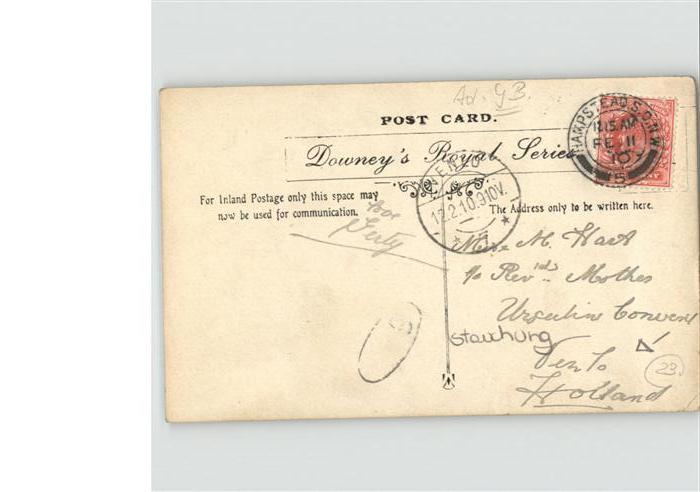 Ad. GB.
POST CARD.
HAMPSTEAD S.O. N.W
11.15 AM
FE 11
10
15
Downey's Royal Series
VENLO
12.2.10.9-10V.
For Inland Postage only this space may
now be used for communication.
The Address only to be written here.
from
Gerty
Miss M. Hart
c/o Revd. Mother
Ursuline Convent
staxhurg
Venlo
23.
Holland